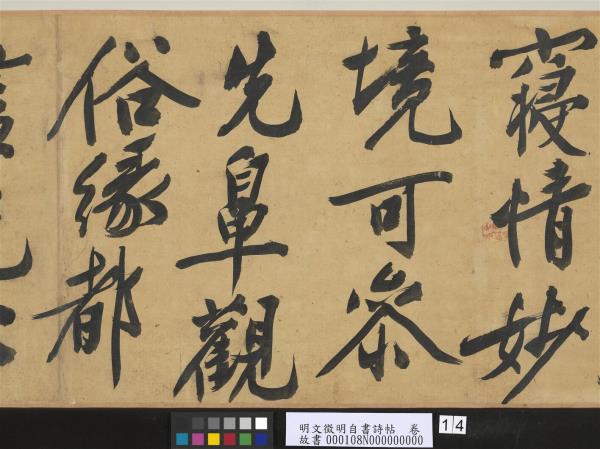 寢情妙
境可參
先鼻觀
俗緣都
明文徵明自書詩帖 卷
故書000108N000000000
14